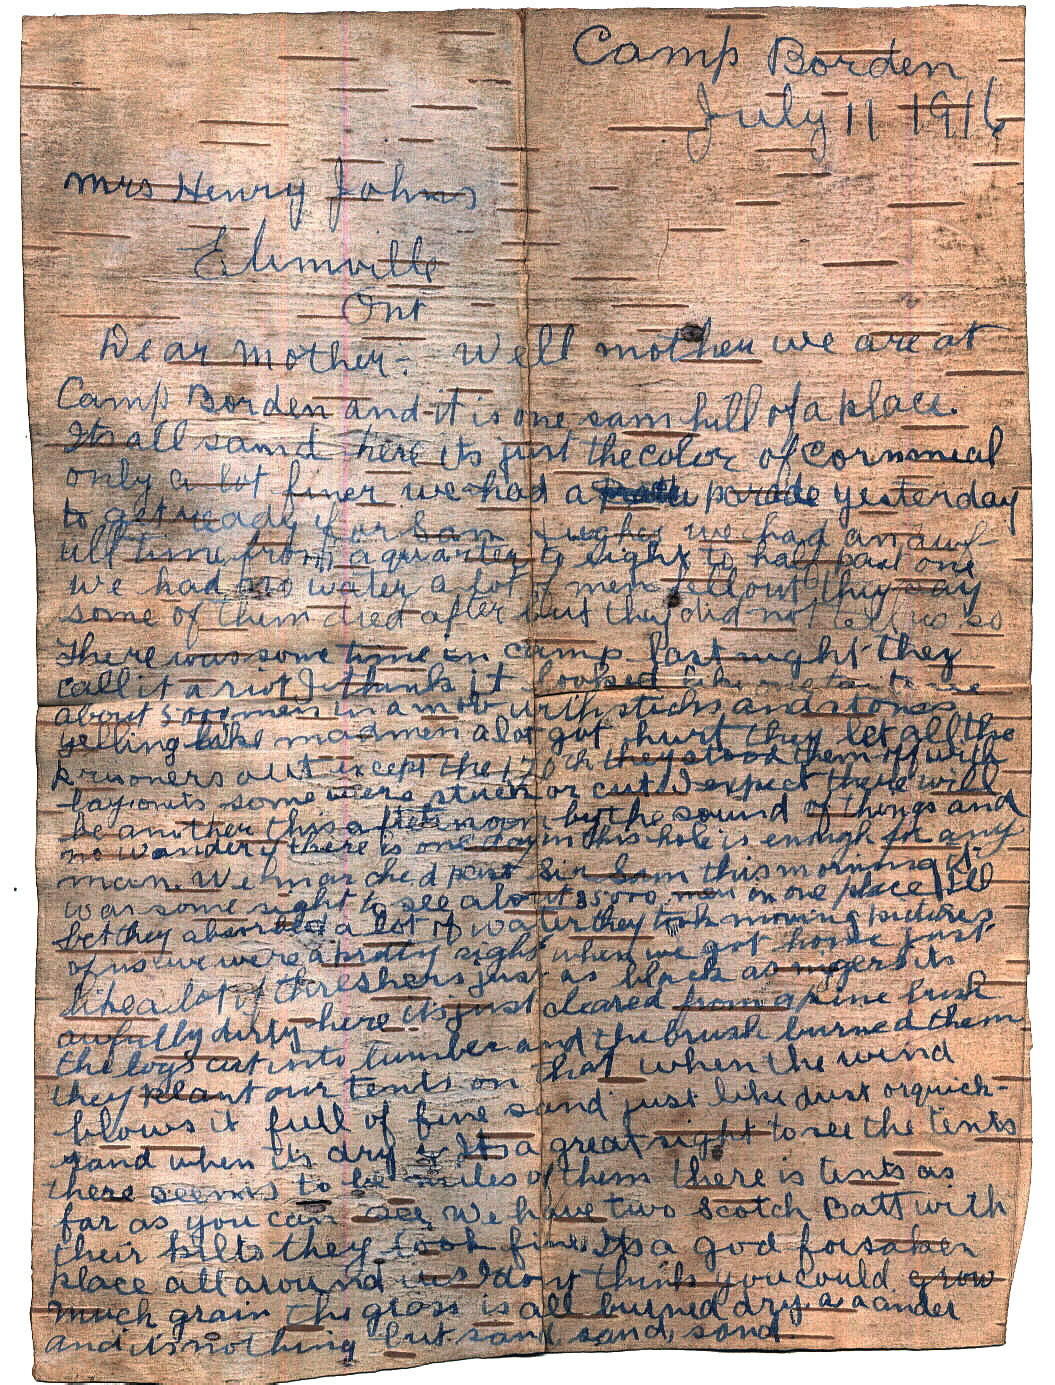 Camp Borden
July 11 1916
Mrs Henry Johns
Elimville
Ont
Dear Mother:- Well mother we are at
Camp Borden and it is one sam hill of a place.
Its all sand here its just the color of cornmeal
only a lot finer we had a parade yesterday
to get ready for Sam Hughes we had an awf-
ull time from a quarter to eight to half past one
we had no water a lot of men fell out they say
some of them died after but they did not tell us so
There was some time in camp last night they
call it a riot I thank it looked like one to me
about 5000 men in a mob with sticks and stones
yelling like madmen a lot got hurt they let all the
prisoners out except the they stood them off with
bayonits some were stuck or cut I expect there will
be another this afternoon by the sound of things and
no wonder if there is one day in this hole is enough for any
man. We marched past Sir Sam this morning it
was some sight to see about 35000 men in one place Ill
bet they absorbed a lot of water they took moving pictures
of us we were a pretty sight when we got home just
like a lot of threshers just as black as nigers its
awfully dirty here its just cleared from a pine bush
the logs cut into lumber and the brush burned them
they plant our tents on that when the wind
blows it full of fine sand just like dust or quick-
sand when its dry & Its a great sight to see the tents
there seems to be miles of them there is tents as
far as you can see, We have two Scotch Batts with
their kilts they look fine. Its a god forsaken
place all around us I dont think you could grow
much grain the grass is all burned dry a a cinder
and its nothing but sand, sand, sand